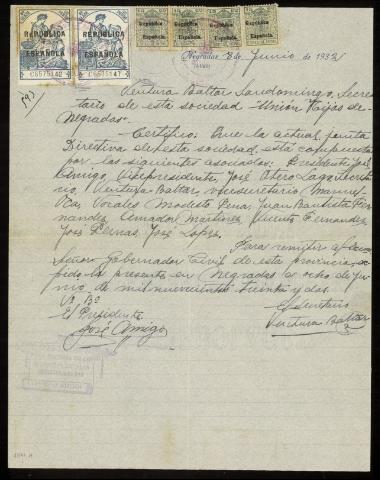 REPÚBLICA
ESPAÑOLA
REPÚBLICA
ESPAÑOLA
República
Española
República
Española
República
Española
República
Española
Negradas 8 de Junio de 1932
Ventura Baltar Sandomingo, Secre-
tario de esta sociedad "Unión Hijos de
Negradas".
Certifico: Que la actual junta
Directiva de esta sociedad, está compuesta
por los siguientes asociados: Presidente José
Amigo, Vicepresidente, José Otero
Ventura Baltar, Vicesecretario Manuel
Vocales Modesto Pena, Juan Bautista Fer-
nández, Amador Martínez, Vicente Fernández
José Pernas, José López.
Para remitir al
Señor Gobernador Civil de esta provincia, ex-
pido la presente en Negradas a ocho de ju-
nio de mil novecientos treinta y dos.
Vº Bº
El Secretario
El Presidente
Ventura Baltar
José Amigo